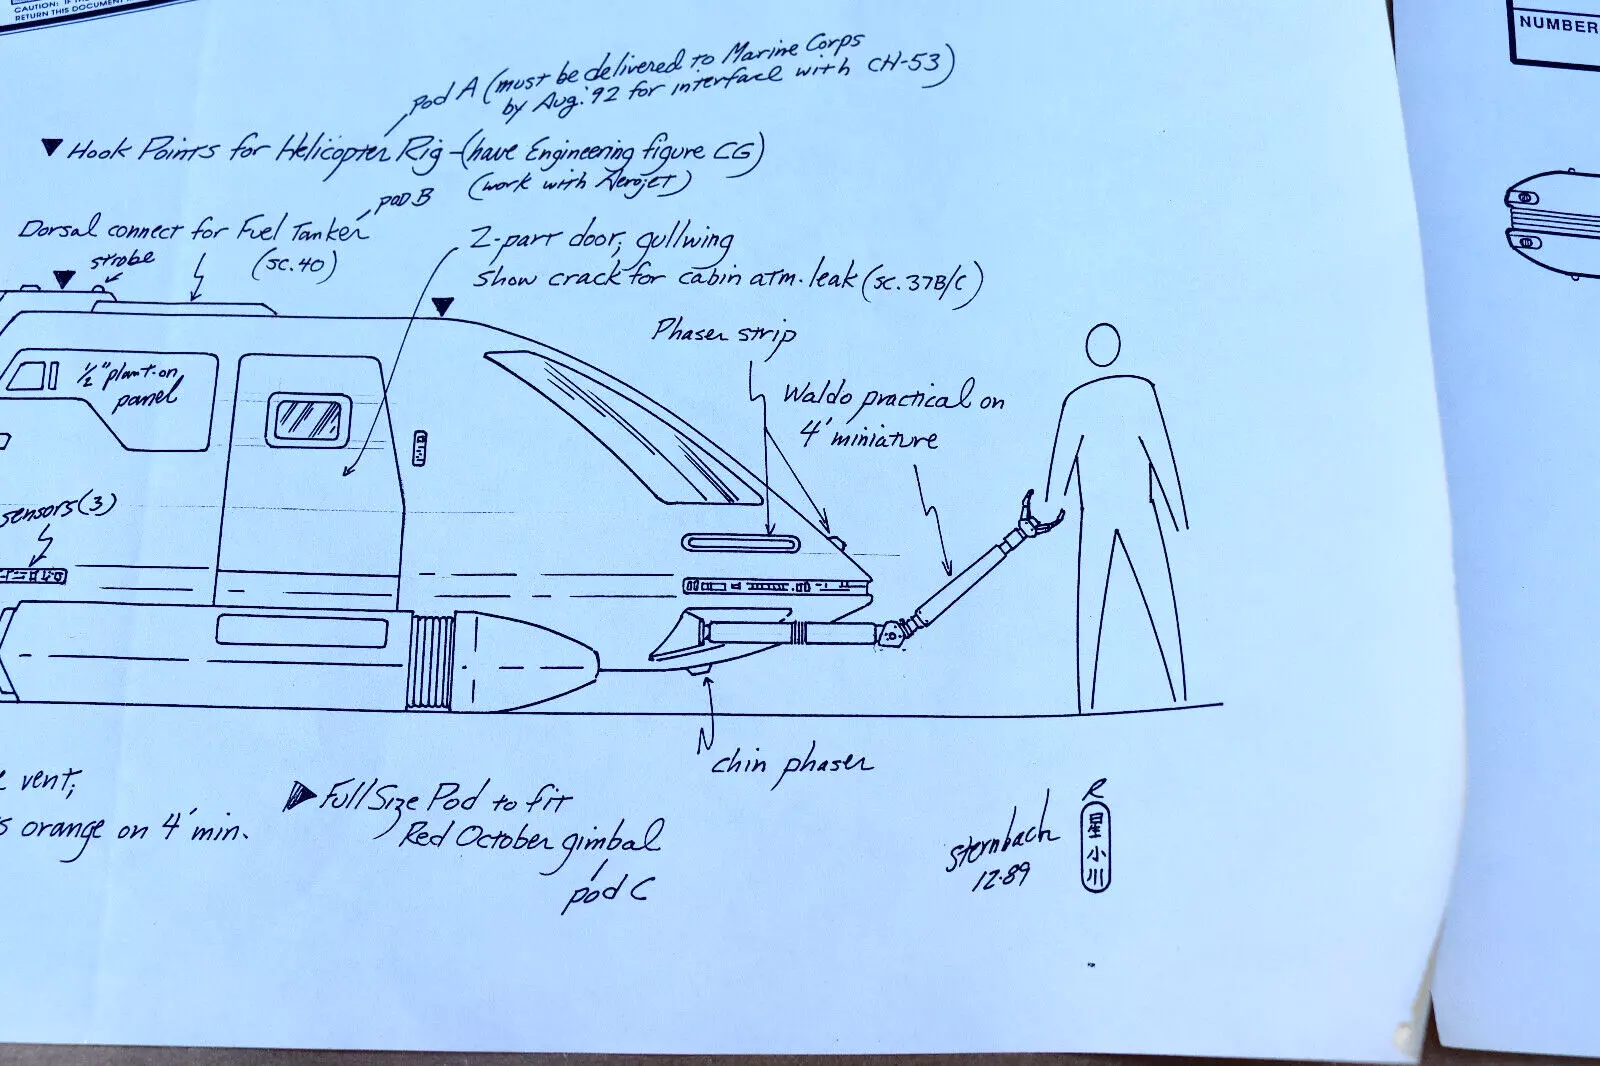 CAUTION: IF
RETURN THIS DOCUMENT
NUMBER
pod A (must be delivered to Marine Corps
by Aug. '92 for interface with CH-53)
Hook Points for Helicopter Rig - (have Engineering figure CG)
(work with Aerojet)
pod B
Dorsal connect for Fuel Tanker
(sc. 40)
strobe
2-part door; gullwing
show crack for cabin atm. leak (sc. 37B/C)
Phaser strip
1/2" plant-on
panel
Waldo practical on
4' miniature
sensors (3)
chin phaser
vent;
orange on 4' min.
Full Size Pod to fit
Red October gimbal
pod C
sternbach
12·89
R
星
小
川